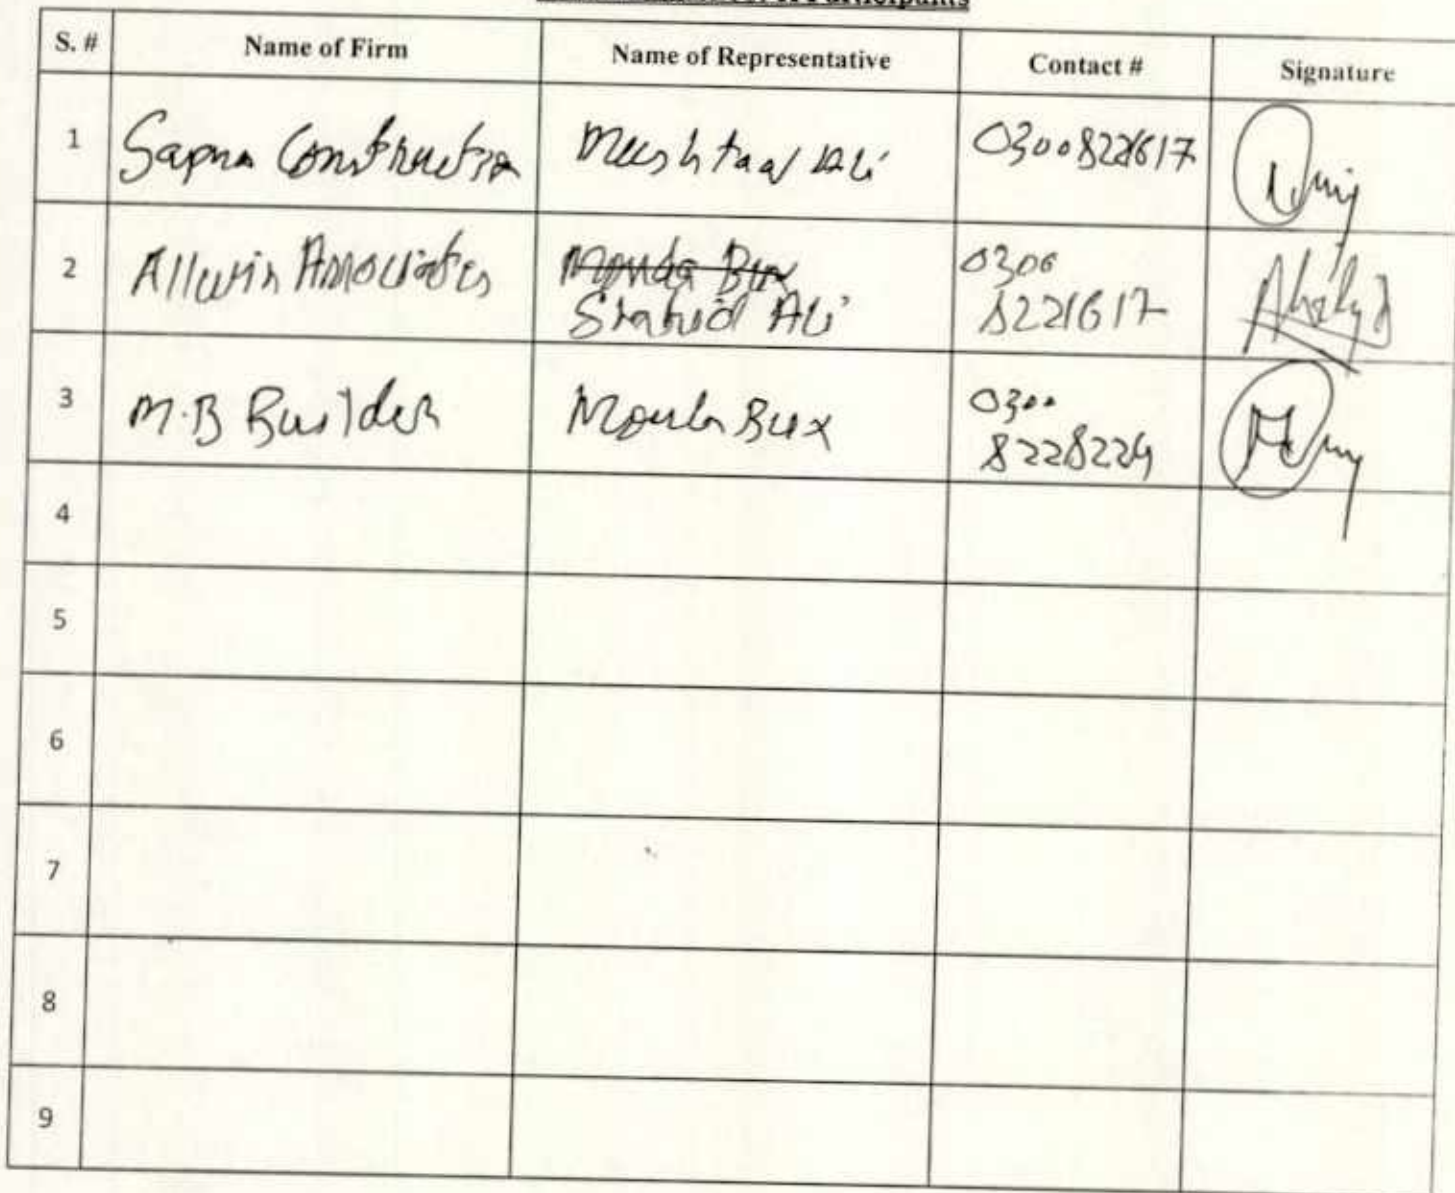 Participants
S. # Name of Firm Name of Representative Contact # Signature
1 Sapna Construction Mushtaq Ali 03008221617
2 Allwin Associates Moula Bux 0300
Shahid Ali 8221617
3 M.B Builder Moula Bux 0300
8228224
4
5
6
7
8
9